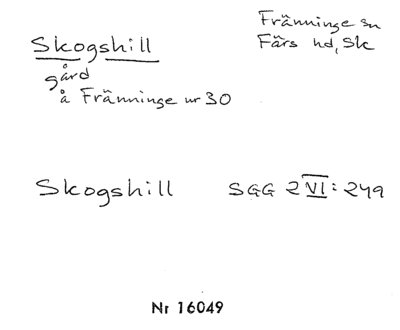 Skogshill
gård
å Fränninge nr 30
Fränninge sn
Färs hd, Sk
Skogshill SGG 2 VI: 249
Nr 16049